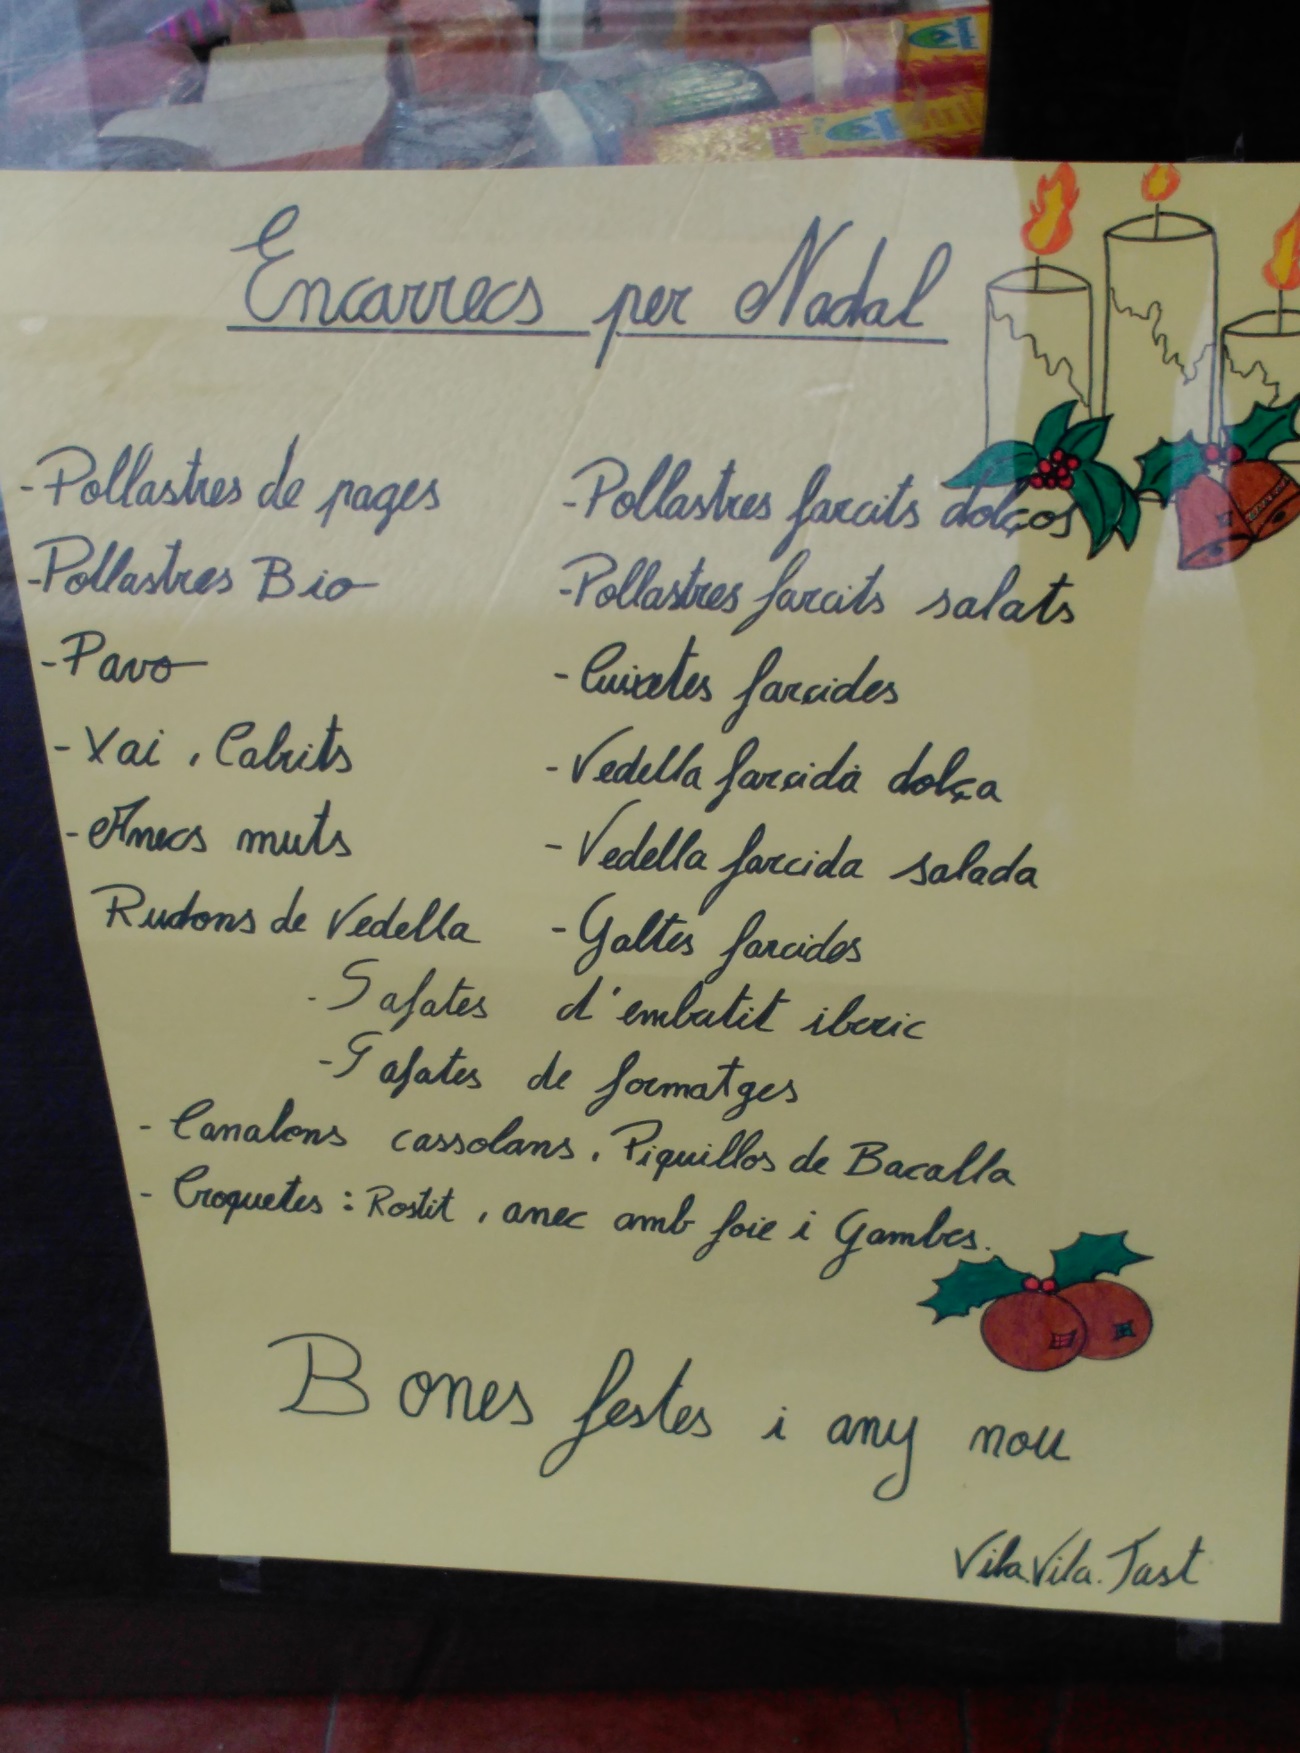 Encarrecs per Nadal
-Pollastres de pages
-Pollastres Bio
-Pavo
-Xai, Cabrits
-Anecs muts
Rudons de Vedella
-Pollastres farcits dolços
-Pollastres farcits salats
-Cuixetes farcides
-Vedella farcida dolça
-Vedella farcida salada
-Galtes farcides
-Safates d'embutit iberic
-Safates de formatges
-Canalons cassolans. Piquillos de Bacalla
-Croquetes: Rostit, anec amb foie i Gambes.
Bones festes i any nou
Vila Vila. Tast